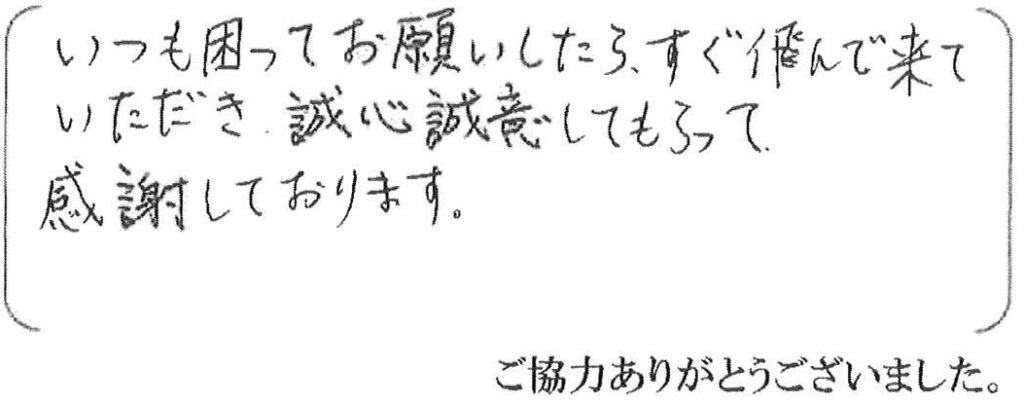 いつも困ってお願いしたら、すぐ飛んで来て
いただき、誠心誠意してもらって、
感謝しております。
ご協力ありがとうございました。